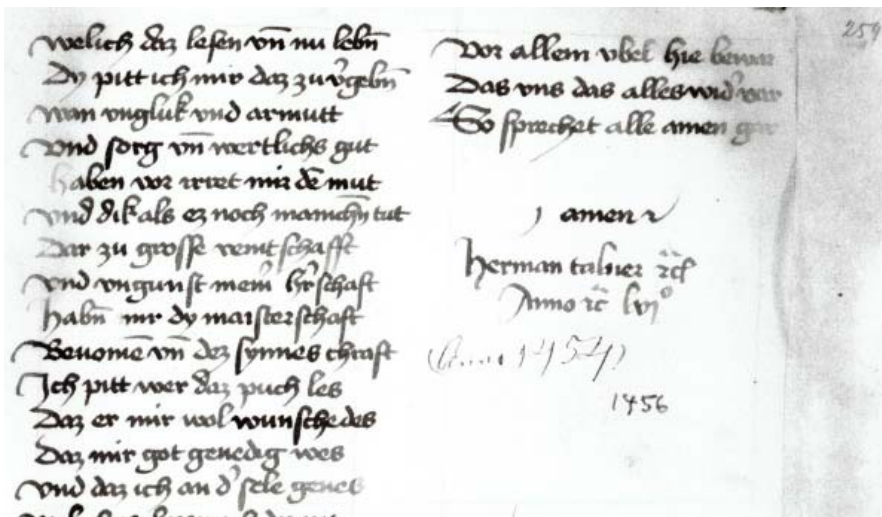 welich daz lesen vn̄ nu lebn̄
Dy pitt ich mir daz zu v̓gebn̄
wan vngluk vnd armutt
vnd sorg vn̄ wertlichs gut
haben vor irret mir dē mut
vnd dik als ez noch manichn̄ tut
Dar zu grosse veintschafft
vnd vngunst mein̄ hr̄schaft
habn̄ mir dy maisterschaft
Benomē vn̄ dez synnes chraft
Ich pitt wer daz puch les
Daz er mir wol wunsche des
Daz mir got genedig wes
vnd daz ich an d̓ sele genes
259
Vor allem vbel hie bewar
Das vns das alles wid̓var
So sprechet alle amen gar
amen
herman talner
Anno lvi°
1456